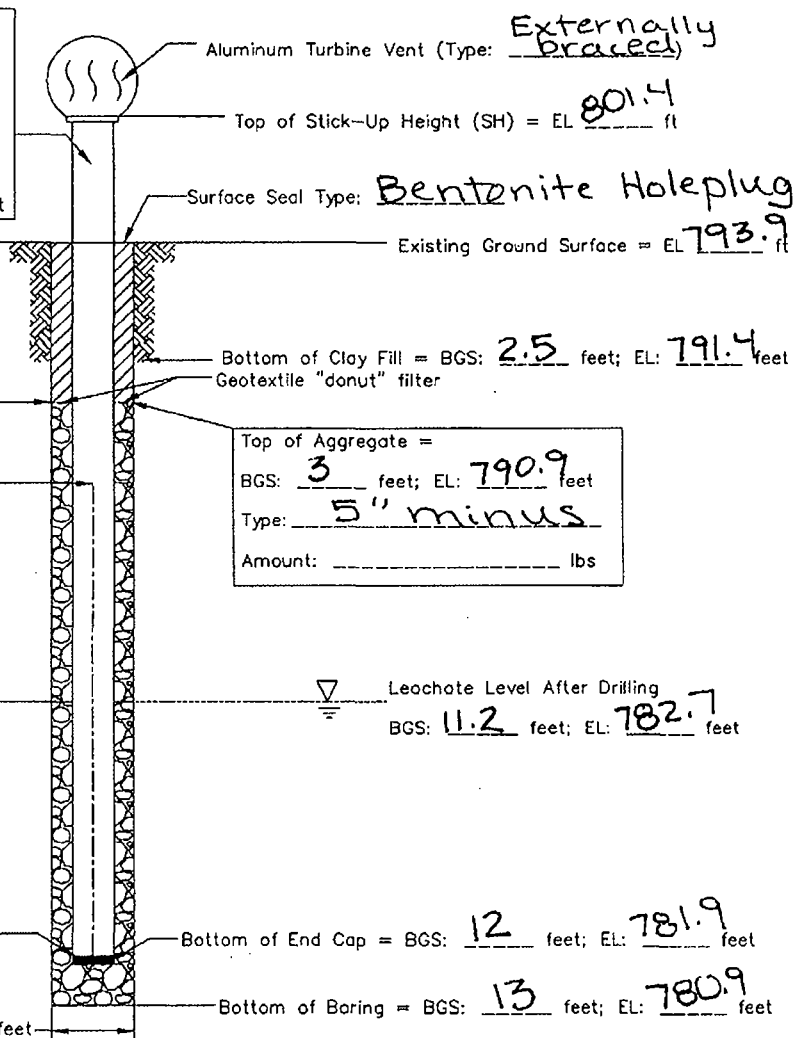 Aluminum Turbine Vent (Type: Externally braced)
Top of Stick-Up Height (SH) = EL 801.4 ft
t
Surface Seal Type: Bentonite Holeplug
Existing Ground Surface = EL 793.9 ft
Bottom of Clay Fill = BGS: 2.5 feet; EL: 791.4 feet
Geotextile "donut" filter
Top of Aggregate =
BGS: 3 feet; EL: 790.9 feet
Type: 5" minus
Amount: ________ lbs
Leachate Level After Drilling
BGS: 11.2 feet; EL: 782.7 feet
Bottom of End Cap = BGS: 12 feet; EL: 781.9 feet
Bottom of Boring = BGS: 13 feet; EL: 780.9 feet
feet